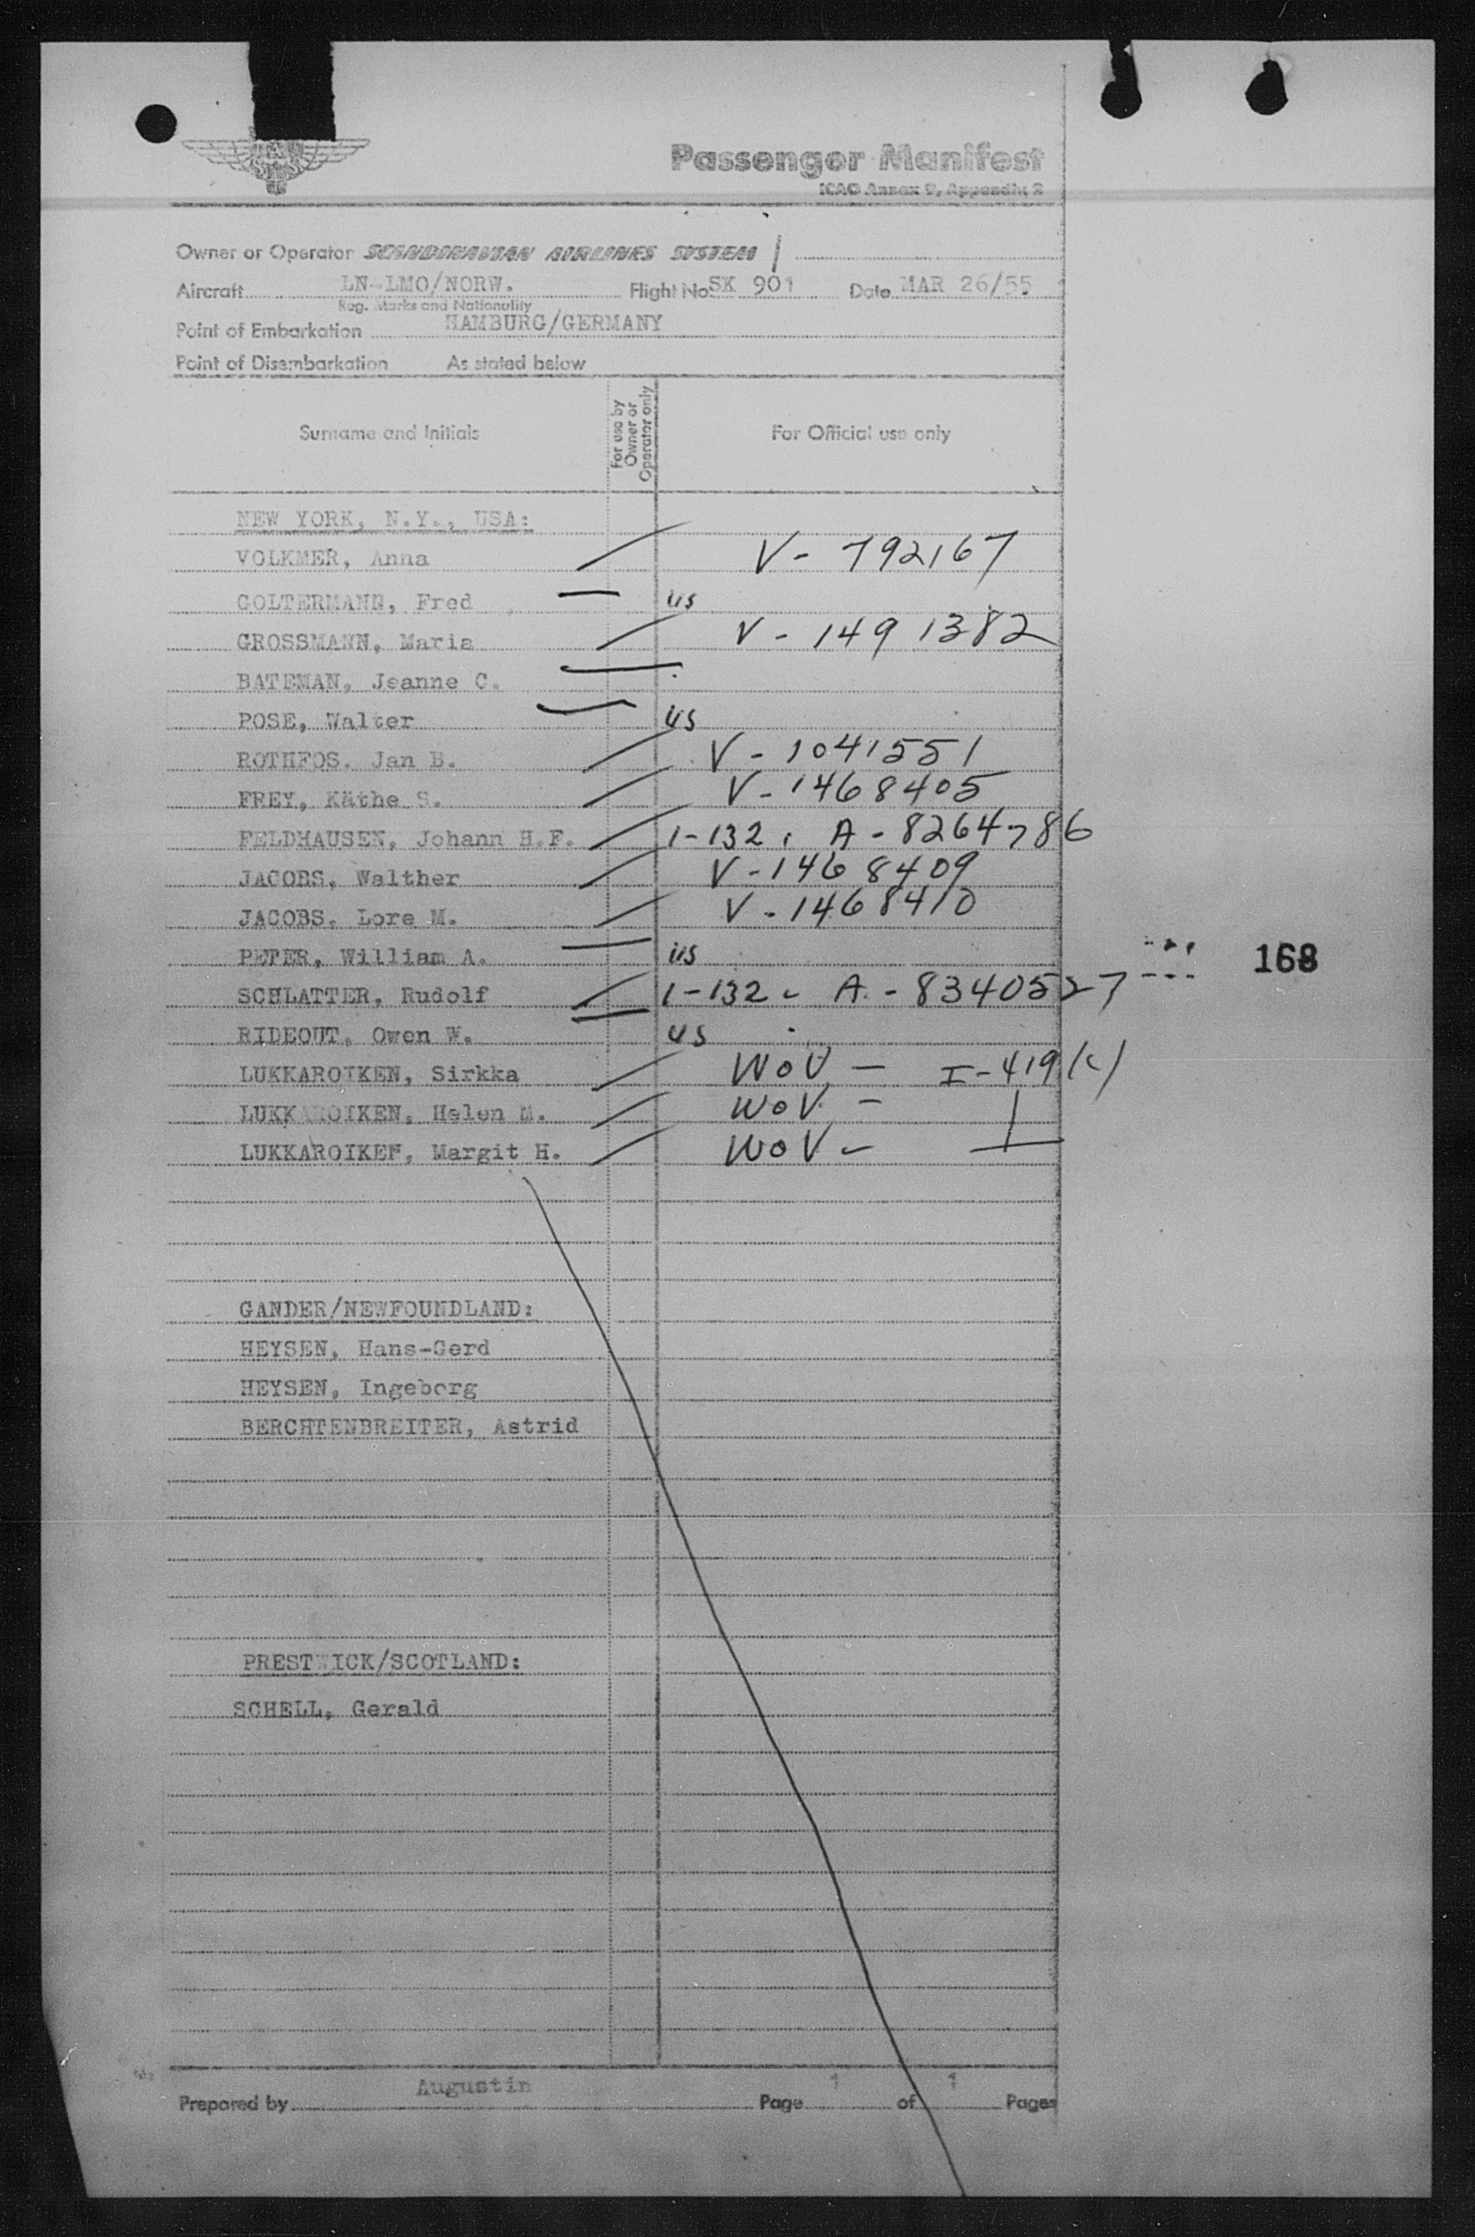 Passenger Manifest
ICAO Annex 9, Appendix 2
Owner or Operator SCANDINAVIAN AIRLINES SYSTEM
Aircraft LN-LMO/NORW. Flight No. SK 901 Date MAR 26/55
Reg. Marks and Nationality
Point of Embarkation HAMBURG/GERMANY
Point of Disembarkation As stated below
Surname and Initials For use by Owner or Operator only For Official use only
NEW YORK, N.Y., USA:
VOLKMER, Anna V- 792167
GOLTERMANN, Fred US
GROSSMANN, Maria V - 1491382
BATEMAN, Jeanne C.
POSE, Walter US
ROTHFOS, Jan B. V - 1041551
FREY, Käthe S. V - 1468405
FELDHAUSEN, Johann H.F. 1-132, A - 8264786
JACOBS, Walther V - 1468409
JACOBS, Lore M. V - 1468410
PETER, William A. US
168
SCHLATTER, Rudolf 1-132 - A - 8340527
RIDEOUT, Owen W. US
LUKKAROIKEN, Sirkka WoV - I-419(c)
LUKKAROIKEN, Helen M. WoV -
LUKKAROIKEN, Margit H. WoV -
GANDER/NEWFOUNDLAND:
HEYSEN, Hans-Gerd
HEYSEN, Ingeborg
BERCHTENBREITER, Astrid
PRESTWICK/SCOTLAND:
SCHELL, Gerald
Prepared by Augustin Page 1 of 1 Pages